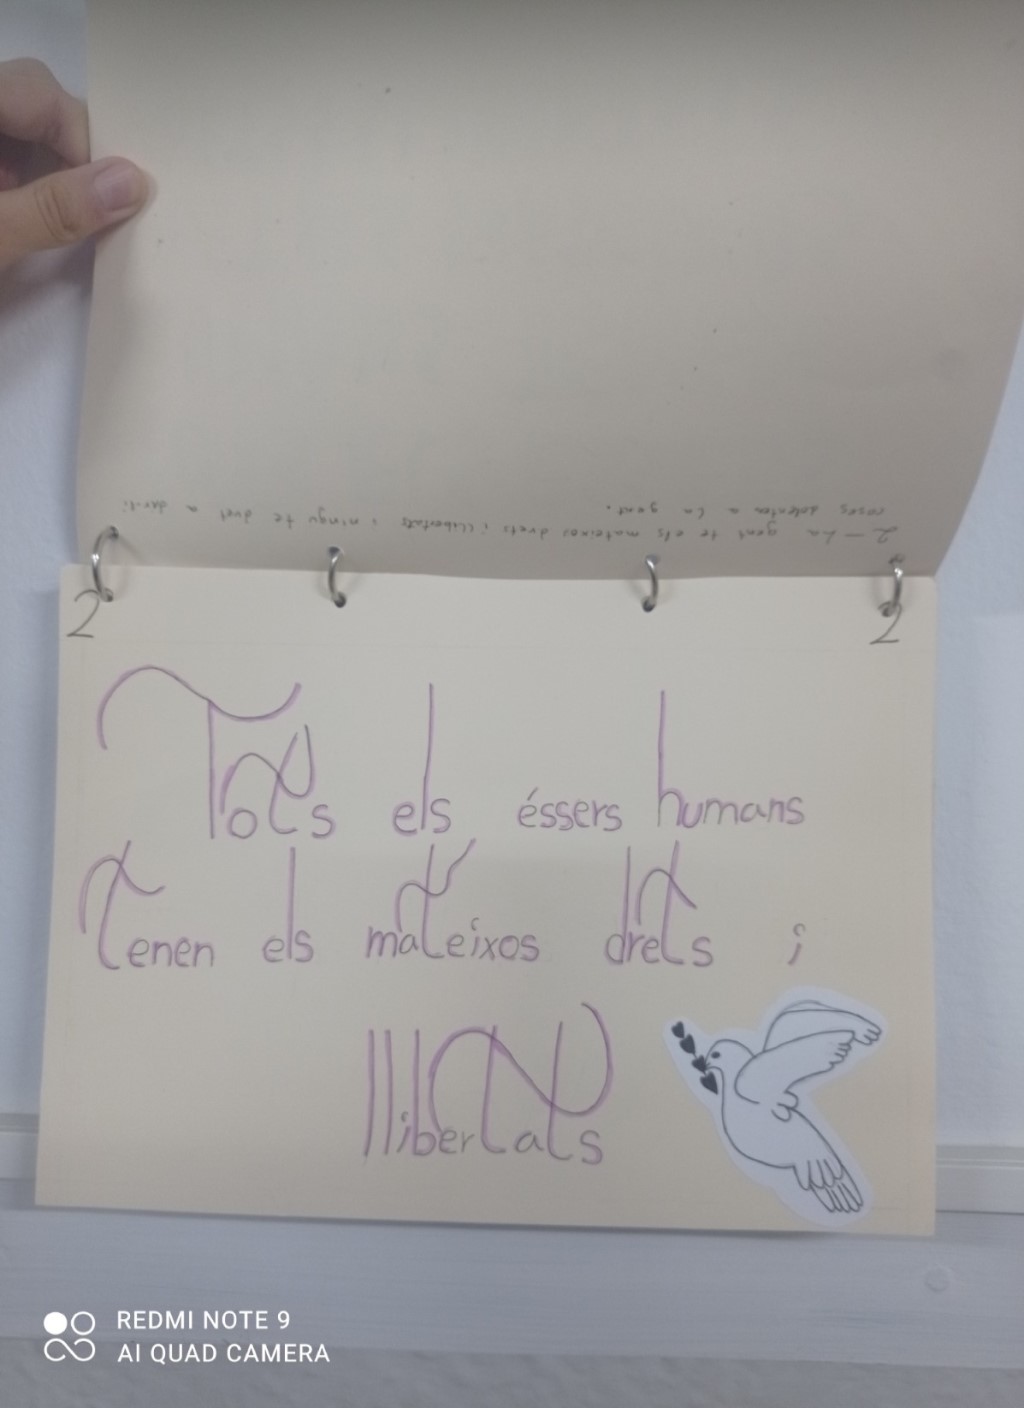 2 - La gent te els mateixos drets i llibertats i ningu te dret a dir-ti
coses dolentes a la gent.
2 2
Tots els éssers humans
tenen els mateixos drets i
llibertats
REDMI NOTE 9
AI QUAD CAMERA